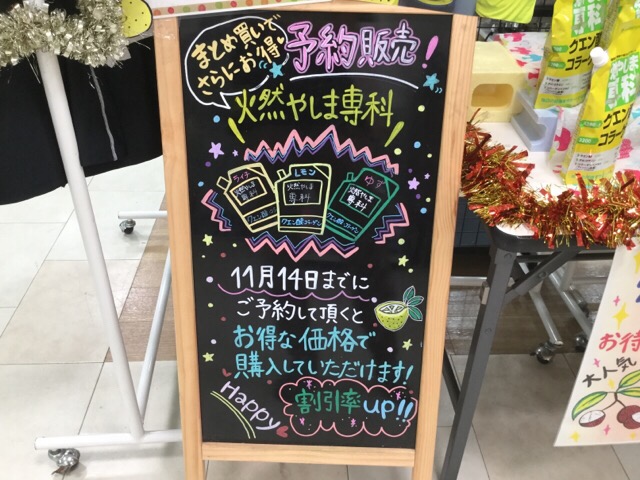 まとめ買いで
さらにお得
予約販売!
火燃やしま専科
ライチ
レモン
ゆず
火燃やしま
専科
火燃やしま
専科
火燃やしま
専科
クエン酸コラーゲン
クエン酸コラーゲン
クエン酸コラーゲン
11月14日までに
ご予約して頂くと
お得な価格で
購入していただけます!
割引率up!!
Happy
クエン
コラー
クエン
コラーゲ
お待
大人気